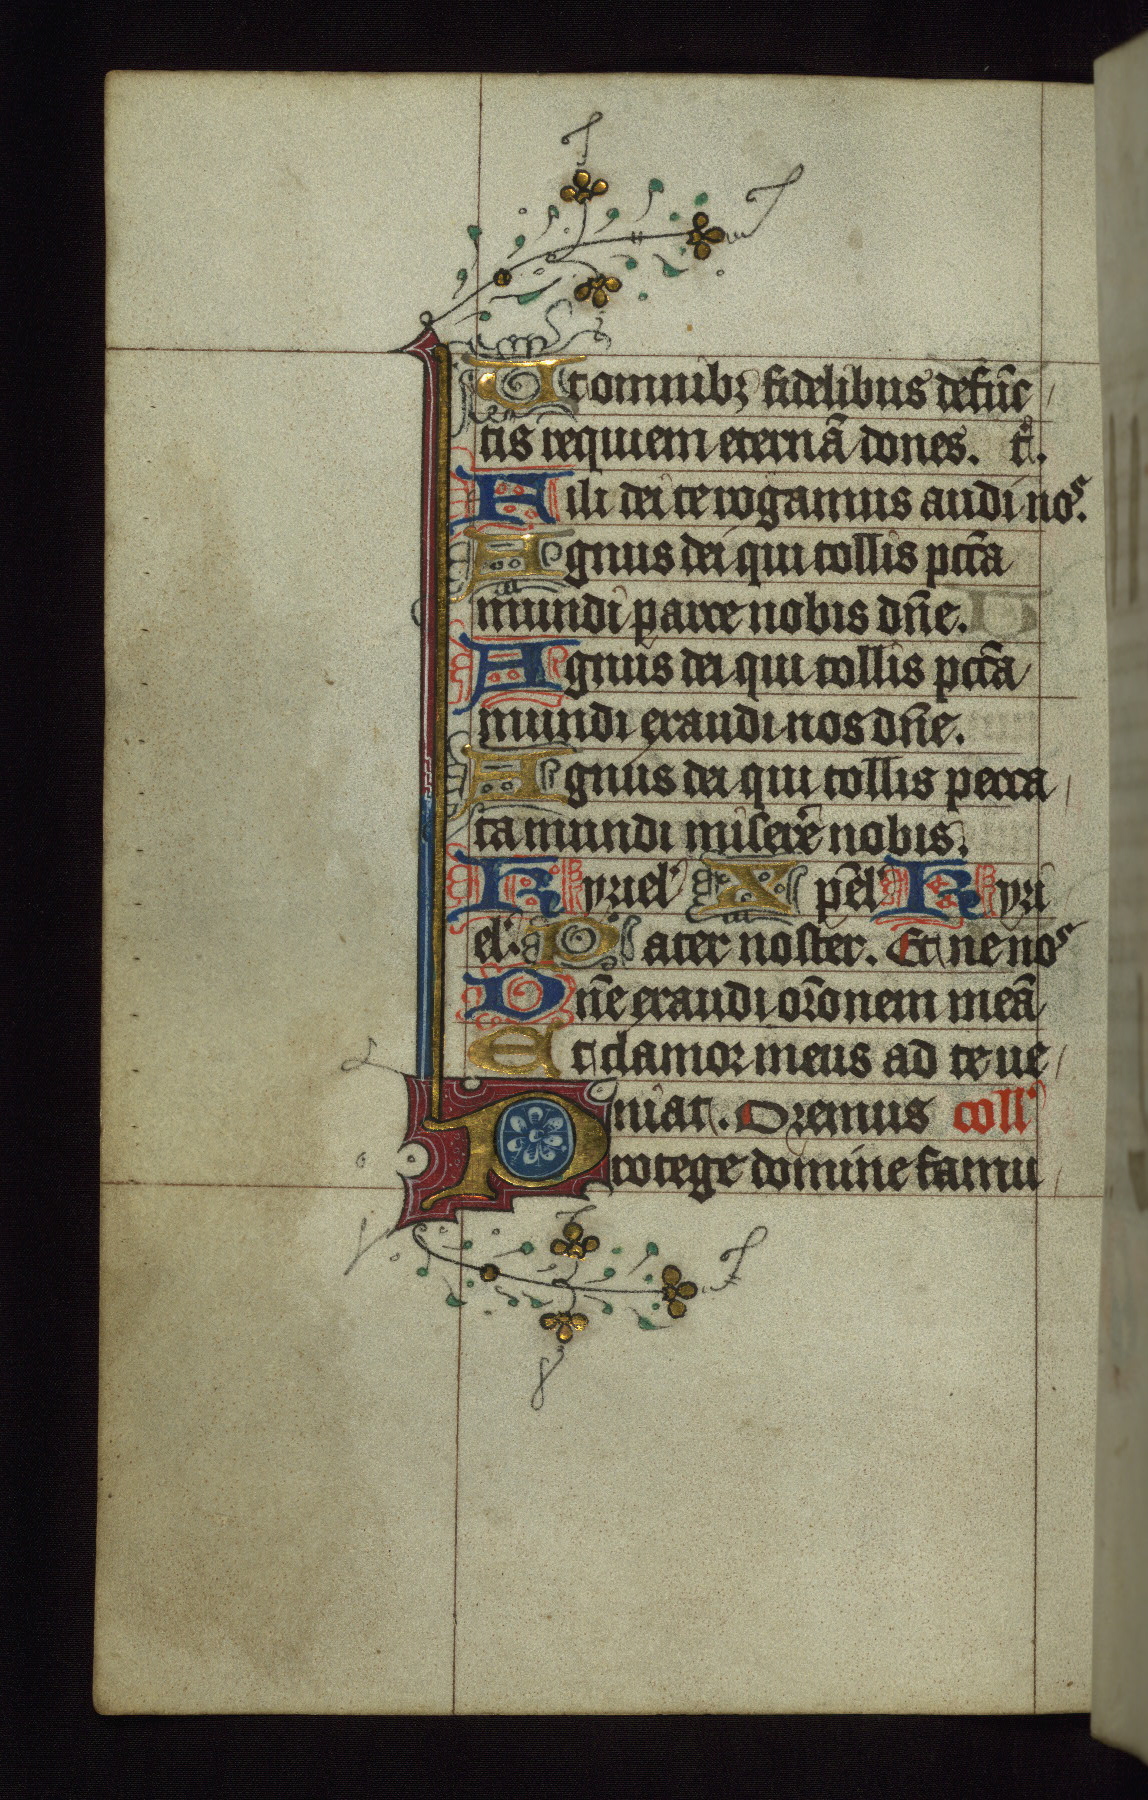 Ut omnibꝫ fidelibus defũc
tis requiem eternã dones. t̃.
Fili dei te rogamus audi nos.
Agnus dei qui tollis pcc̃a
mundi parce nobis dñe.
Agnus dei qui tollis pcc̃a
mundi exaudi nos dñe.
Agnus dei qui tollis pecca
ta mundi miserẽ nobis.
Kyriel' Xp̃el' Kyri
el'. Pater noster. Et ne nos
Dñe exaudi or̃onem meã
Et clamor meus ad te ue
niat. Oremus coll'
Protege domine famu